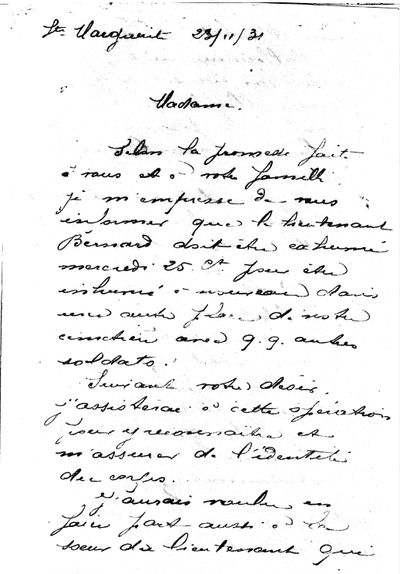 Ste Marguerit 23/11/31
Madame.
Selon la promesse fait
à vous et à votre famille
je m'empresse de vous
informer que le lieutenant
Bernard doit être exhumé
mercredi 25 Ct pour être
inhumé à nouveau dans
une autre place de notre
cimetière avec q.q. autres
soldats.
Suivant votre désir,
j'assisterai à cette opération
pour y reconnaitre et
m'assurer de l'identité
du corps.
J'aurais voulu en
faire part aussi à la
soeur du lieutenant qui